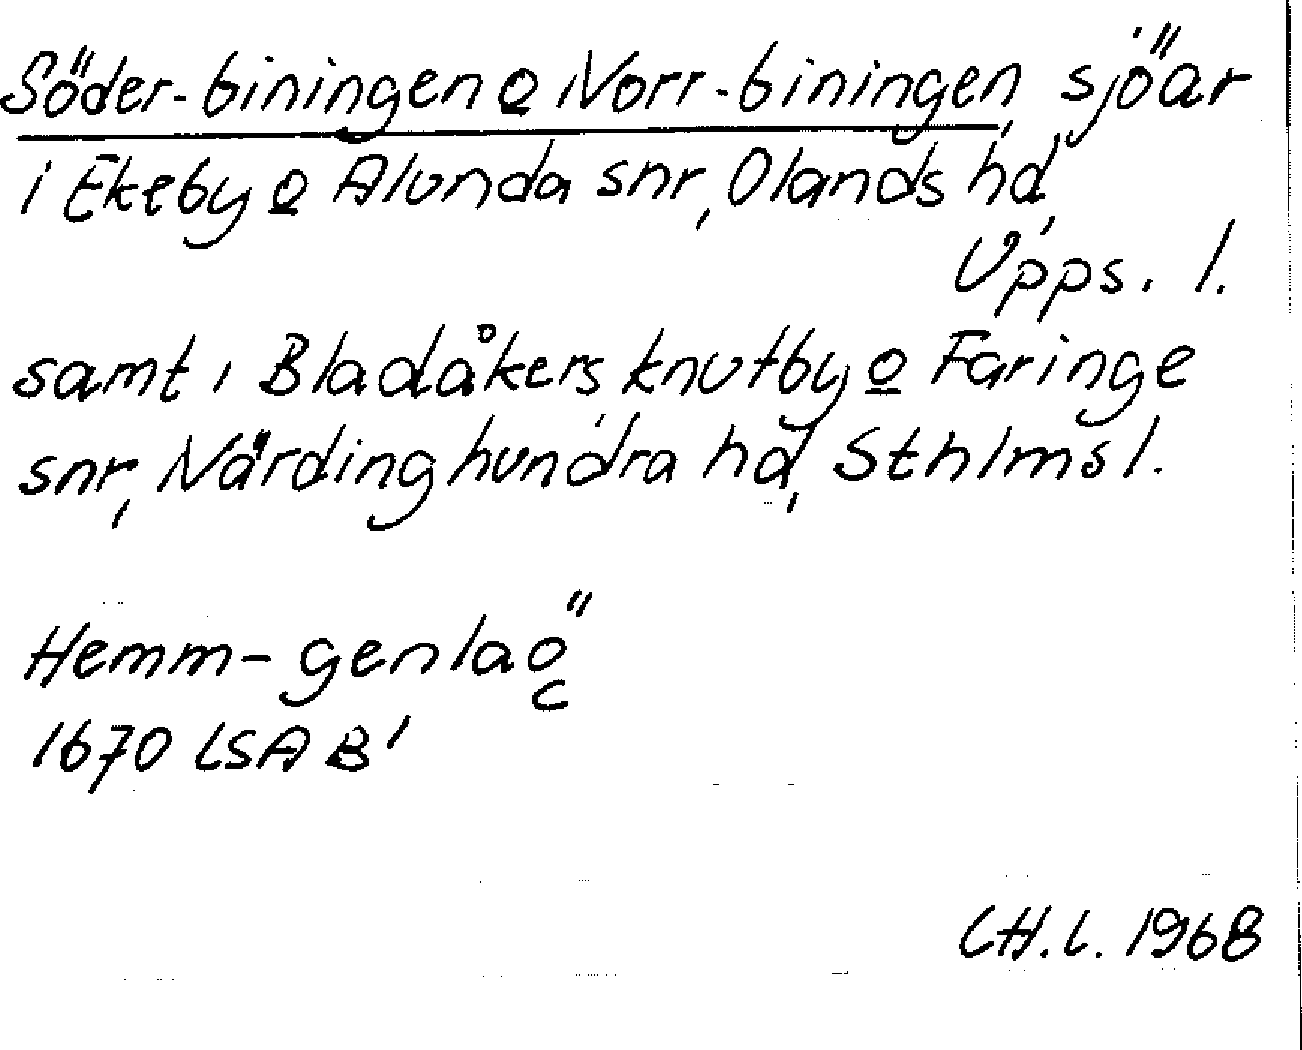 Söder-biningen o Norr-biningen sjöar
i Ekeby o Alunda snr, Olands hd,
Upps. l.
samt i Bladåkers, knutby o Faringe
snr, Närdinghundra hd, Sthlms l.
Hemm-genlaö
1670 LSA B1
CH.L. 1968